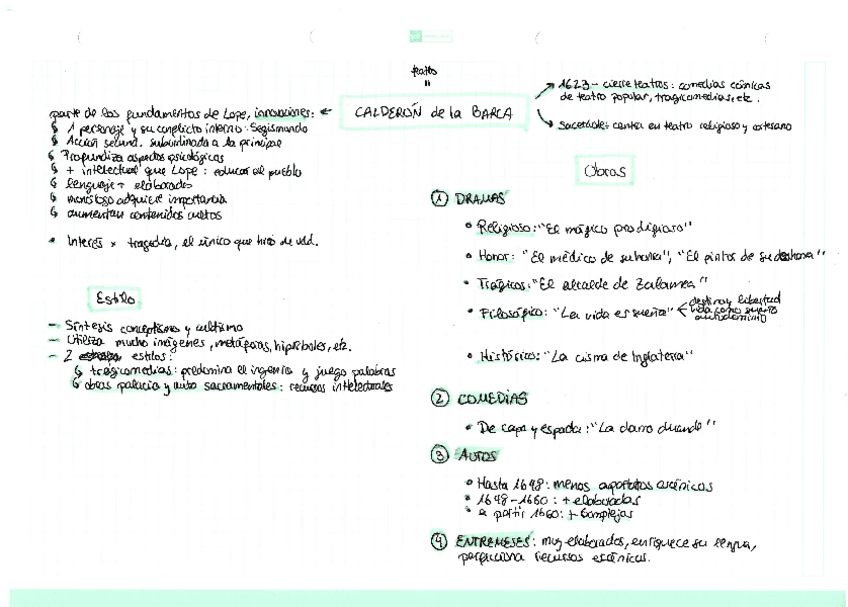 teatro
"
CALDERÓN de la BARCA
1623 - cierre teatros: comedias cómicas
de teatro popular, tragicomedias, etc.
Sacerdote: centra en teatro religioso y cortesano
parte de los fundamentos de Lope, innovaciones:
1 personaje y su conflicto interno: Segismundo
Acción secund. subordinada a la principal
Profundiza aspectos psicológicos
+ intelectual que Lope: educar al pueblo
lenguaje + elaborado
monólogo adquiere importancia
aumentan contenidos cultos
• Interés x tragedia, el único que hizo de vdd.
Estilo
- Síntesis conceptismo y cultismo
- Utiliza mucho imágenes, metáforas, hipérboles, etc.
- 2 estilos:
tragicomedias: predomina el ingenio y juego palabras
obras palacio y auto sacramentales: recursos intelectuales
Obras
① DRAMAS
• Religioso: "El mágico prodigioso"
• Honor: "El médico de su honra", "El pintor de su deshonra"
• Trágicos: "El alcalde de Zalamea"
• Filosófico: "La vida es sueño"
destino y libertad
vida como sueño
autodominio
• Histórico: "La cisma de Inglaterra"
② COMEDIAS
• De capa y espada: "La dama duende"
③ AUTOS
• Hasta 1648: menos aparatos escénicos
• 1648-1660: + elaboradas
• a partir 1660: + complejas
④ ENTREMESES: muy elaborados, enriquece su lengua,
perfecciona recursos escénicos.